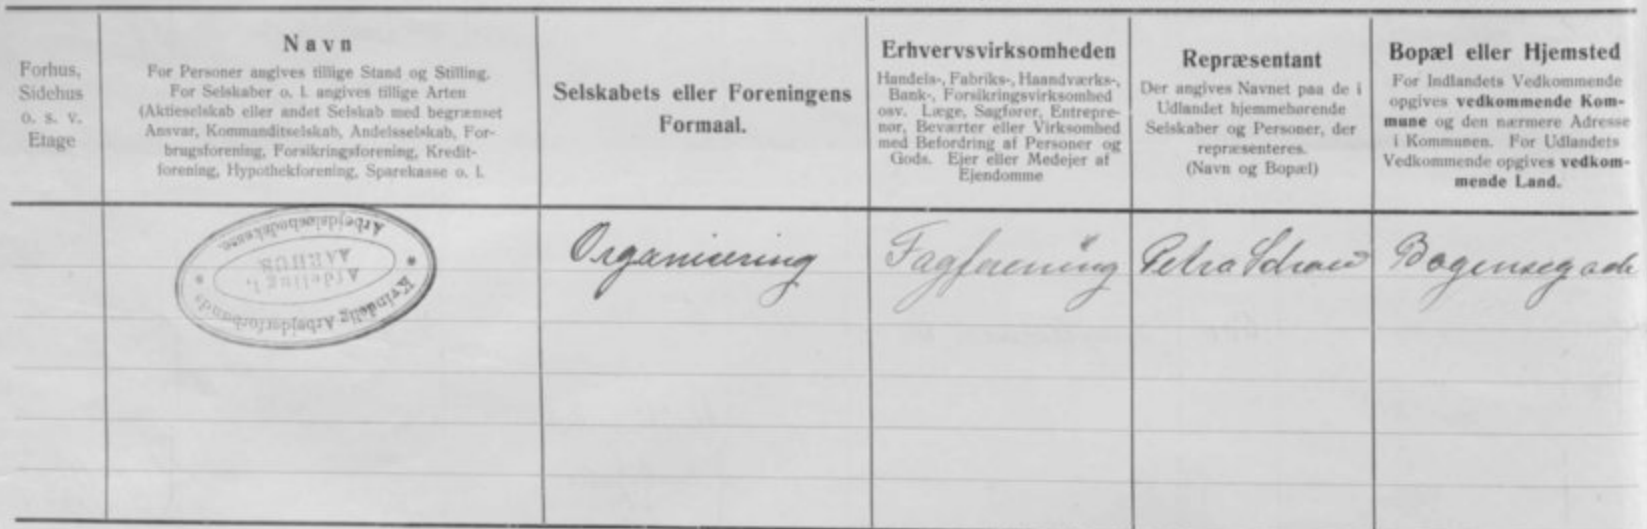 Forhus,
Sidehus
o. s. v.
Etage
Navn
For Personer angives tillige Stand og Stilling.
For Selskaber o. l. angives tillige Arten
(Aktieselskab eller andet Selskab med begrænset
Ansvar, Kommanditselskab, Andelsselskab, For-
brugsforening, Forsikringsforening, Kredit-
forening, Hypothekforening, Sparekasse o. l.
Selskabets eller Foreningens
Formaal.
Erhvervsvirksomheden
Handels-, Fabriks-, Haandværks-,
Bank-, Forsikringsvirksomhed
osv. Læge, Sagfører, Entrepre-
nør, Beværter eller Virksomhed
med Befordring af Personer og
Gods. Ejer eller Medejer af
Ejendomme
Repræsentant
Der angives Navnet paa de i
Udlandet hjemmehørende
Selskaber og Personer, der
repræsenteres.
(Navn og Bopæl)
Bopæl eller Hjemsted
For Indlandets Vedkommende
opgives vedkommende Kom-
mune og den nærmere Adresse
i Kommunen. For Udlandets
Vedkommende opgives vedkom-
mende Land.
Kvindelig Arbejderforbunds
Afdeling 1.
AARHUS
Arbejdsløshedskasse.
Organisering
Fagforening
Petra
Bogensegade